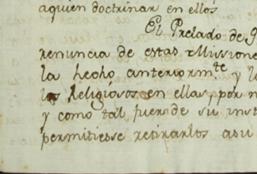 aquien doctrinar en ellos
El Prelado de
renuncia de estas Missione
la hecho anteriormte. y l
los Religiosos en ellas, por
y como tal fuer de su inst
permitiesse retirarlos a su